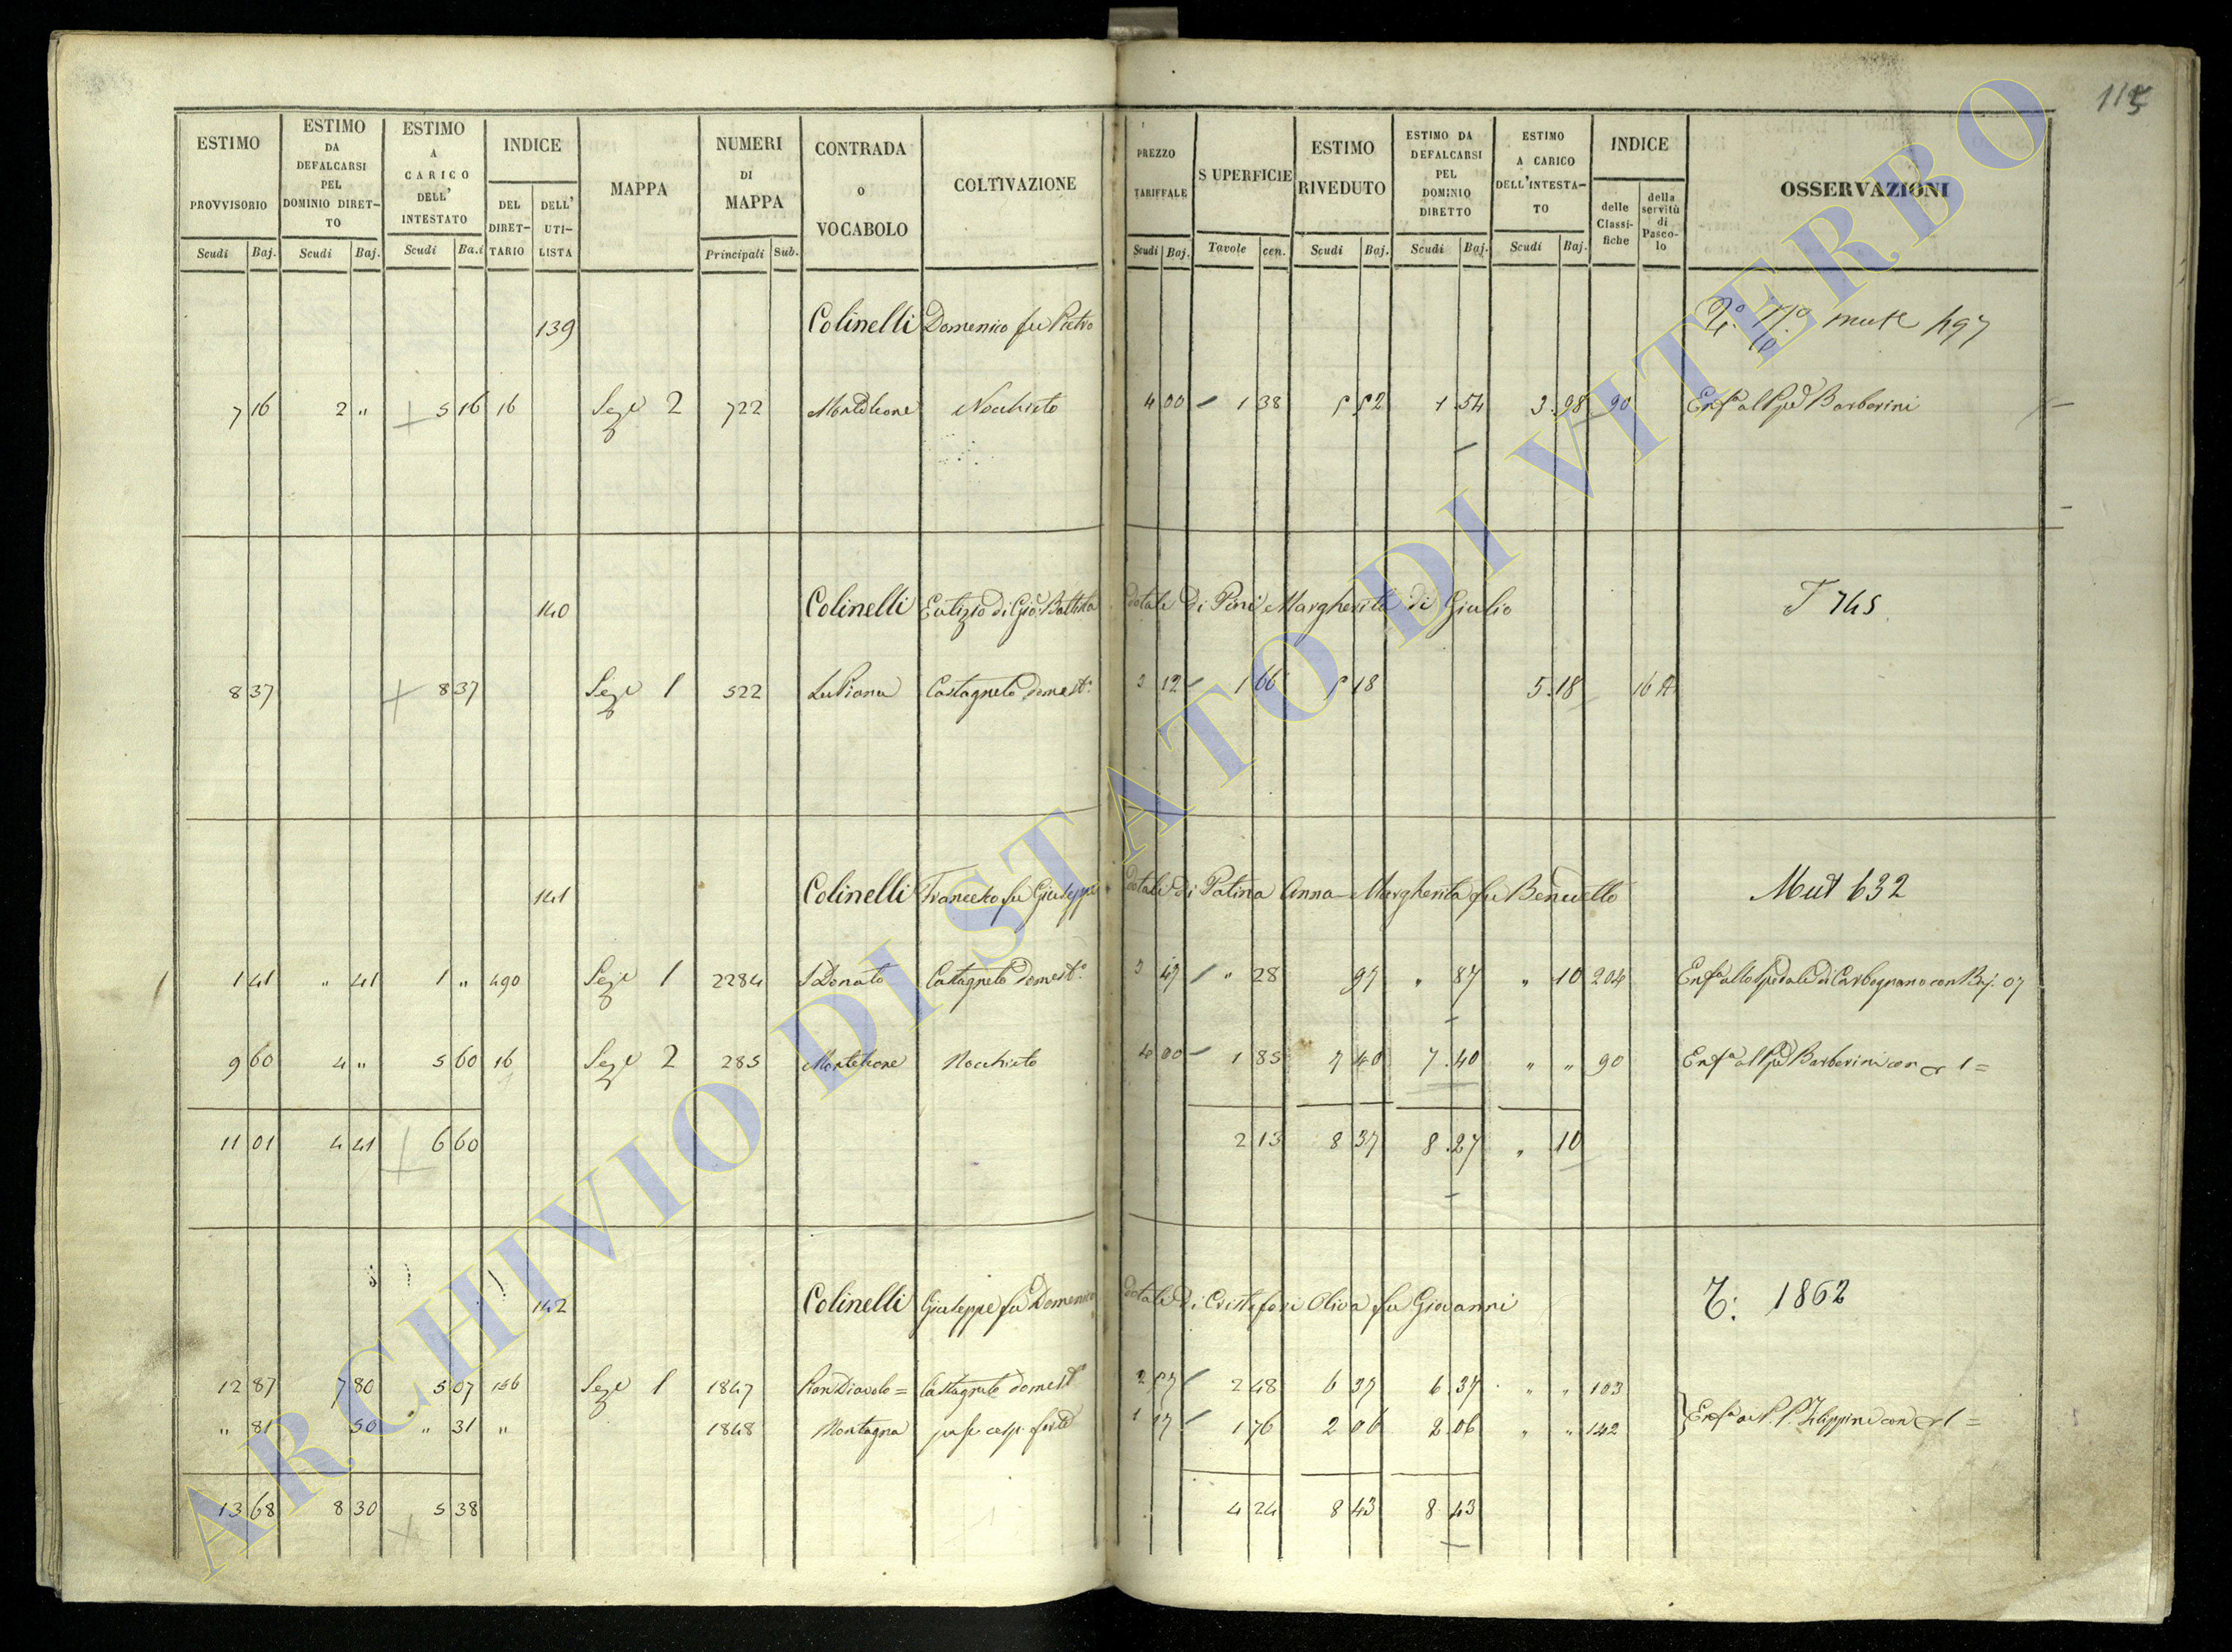 115
ESTIMO PROVVISORIO
ESTIMO DA DEFALCARSI PEL DOMINIO DIRET-TO
ESTIMO A CARICO DELL' INTESTATO
INDICE
DEL DIRET-TARIO
DELL' UTI-LISTA
MAPPA
NUMERI DI MAPPA
CONTRADA O VOCABOLO
COLTIVAZIONE
PREZZO TARIFFALE
SUPERFICIE
ESTIMO RIVEDUTO
ESTIMO DA DEFALCARSI PEL DOMINIO DIRETTO
ESTIMO A CARICO DELL'INTESTA-TO
INDICE
delle Classi-fiche
della servitù di Pasco-lo
OSSERVAZIONI
Scudi Baj. Scudi Baj. Scudi Ba.i Principali Sub. Scudi Baj. Tavole cen. Scudi Baj. Scudi Baj. Scudi Baj.
139 Colinelli Domenico fu Pietro 497
7 16 2 " 5 16 16 Seze 2 722 Monteleone Nocchieto 4 00 1 38 5 52 1.54 3.98 90 Enfa al Ppe Barberini
140 Colinelli Eutizio di Gio: Battista dotale di Pini Margherita di Giulio T 745
8 37 8 37 Seze 1 522 La Piana Castagneto domest.o 3 12 1 66 5 18 5.18 16
141 Colinelli Francesco fu Giuseppe dotale di Patina Anna Margherita fu Benedetto Mut 632
1 41 " 41 1 " 490 Seze 1 2284 S Donato Castagneto domest.o 3 47 " 28 97 " 87 " 10 204 Enfa allo Spedale di Carbognano con Baj. 07
9 60 4 " 5 60 16 Seze 2 285 Monteleone Nocchieto 4 00 1 85 7 40 7.40 " " 90 Enfa al Ppe Barberini con 1=
11 01 4 41 6 60 2 13 8 37 8.27 " 10
142 Colinelli Giuseppe fu Domenico dotale di Cristofori Oliva fu Giovanni T: 1862
12 87 7 80 5 07 156 Seze 1 1847 Pian Diavolo= Castagneto domest.o 2 57 2 48 6 37 6.37 " " 103
" 81 50 " 31 " 1848 Montagna pasc. cesp. forte 1 17 1 76 2 06 2.06 " " 142 Enfa ai P.P. Filippini con 1=
13 68 8 30 5 38 4 24 8 43 8 43
ARCHIVIO DI STATO DI VITERBO